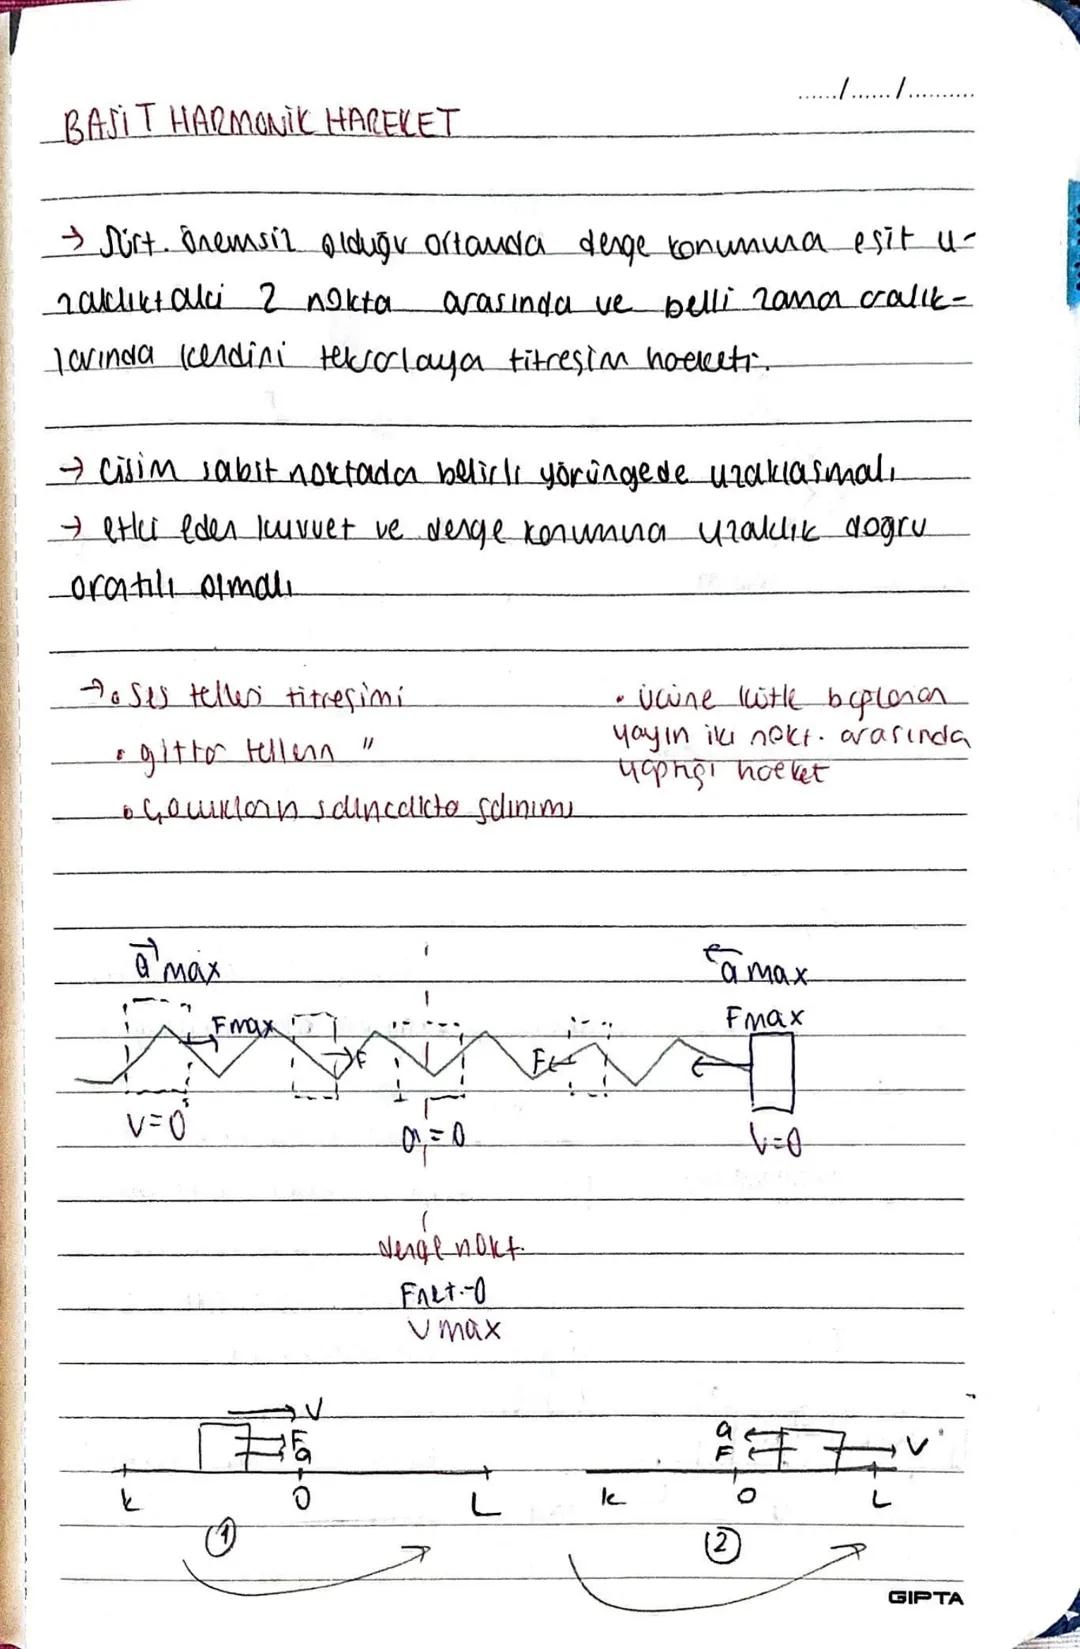 ....../....../..........
BASiT HARMONiK HAREKET
→ Sürt. önemsiz olduğu ortamda denge konumuna eşit u-
zaklıktaki 2 nokta arasında ve belli zama aralık-
larında kendini tekrarlaya titreşim hareketi.
→ Cisim sabit noktadan belirli yörüngede uzaklaşmalı
→ etki eden kuvvet ve denge konumuna uzaklık doğru
orantılı olmalı
→ • Ses telleri titreşimi
• gittar tellerin "
• Çocukların salıncakta salınımı
• Ucuna kütle bağlanan
yayın iki nokt. arasında
yaptığı hareket
a max
a max
Fmax
F
F
Fmax
V=0
a=0
V=0
denge nokt.
Fnet=0
V max
V
F
a
K
O
L
1
a
F
V
K
O
L
2
GIPTA